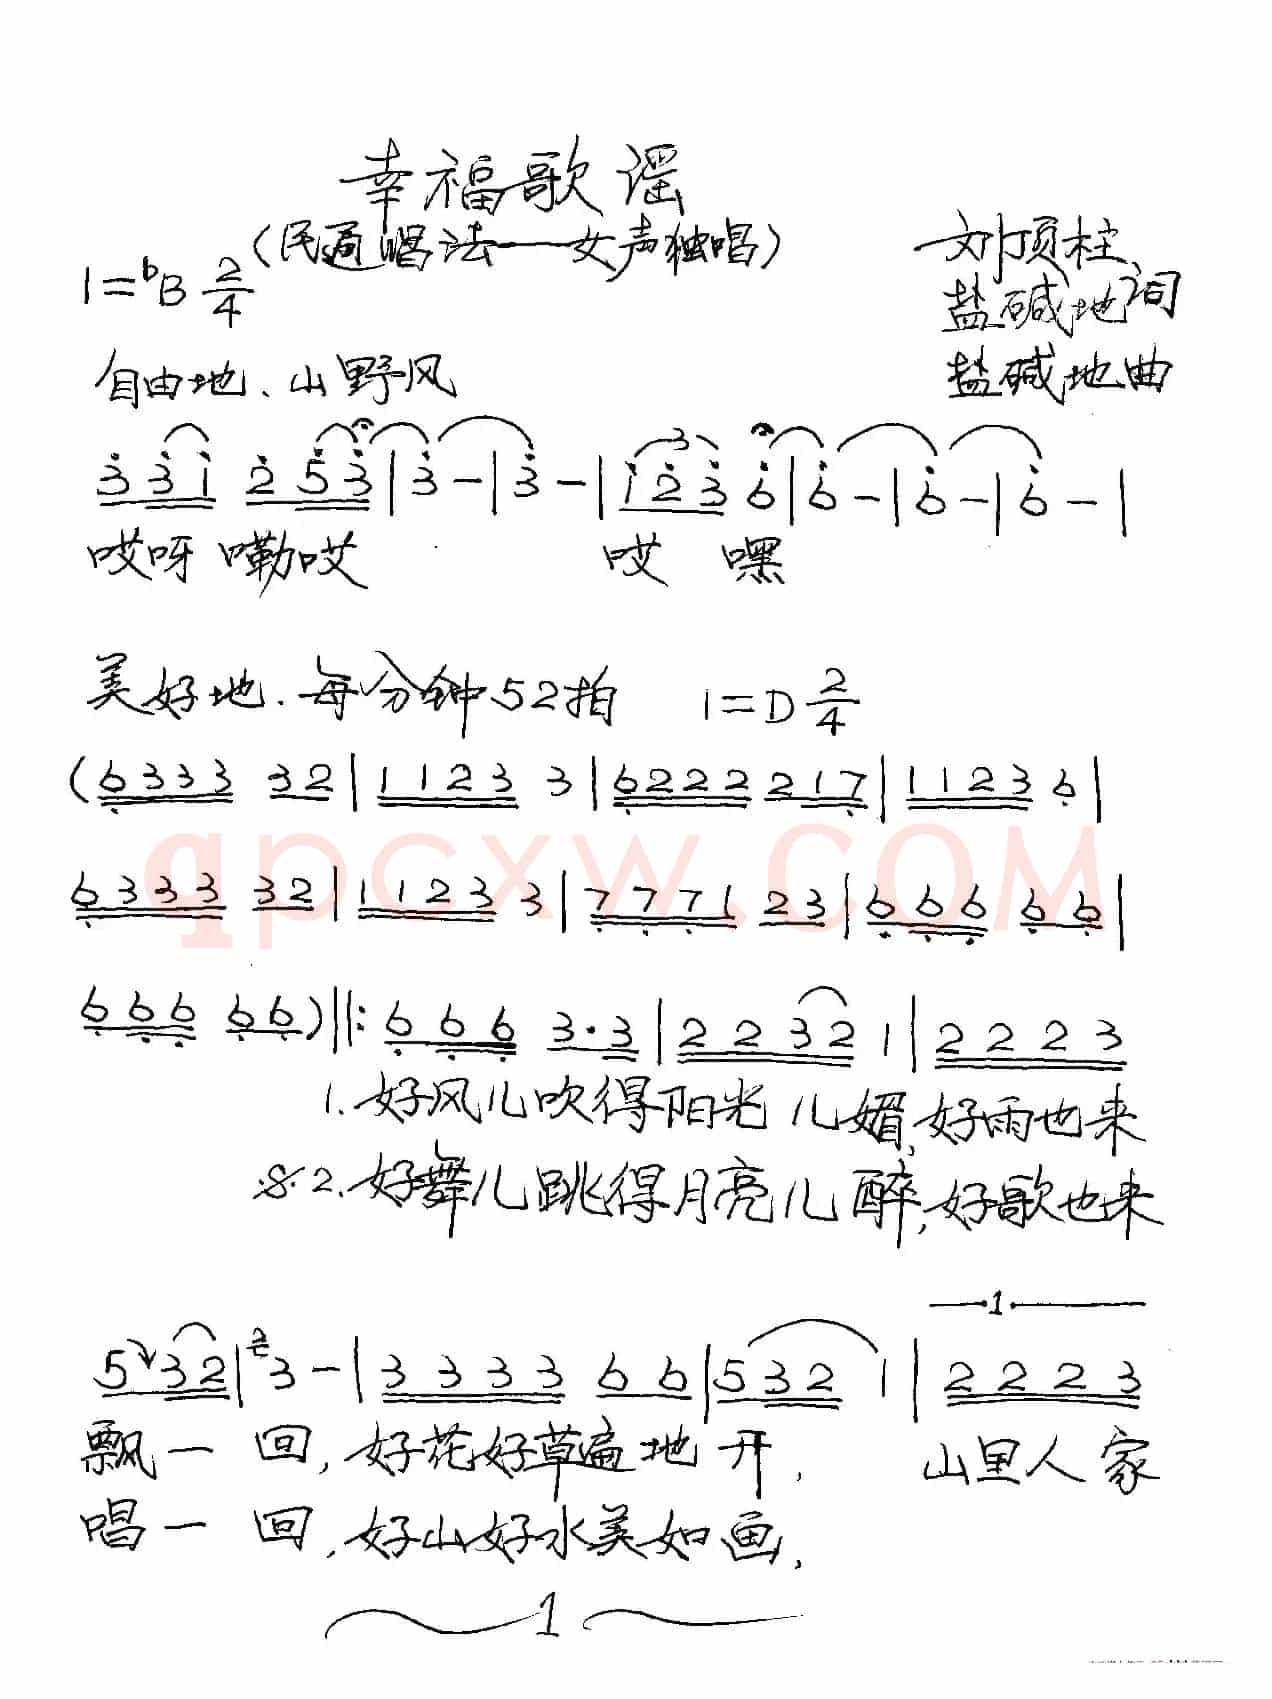 幸福歌谣
(民通唱法——女声独唱)
刘顶柱、
1=bB 2/4
盐碱地词
自由地、山野风
盐碱地曲
3 3 1 2 5 3 | 3 - | 3 - | 1 2 3 6 | 6 - | 6 - | 6 - |
哎呀嘞哎 哎 嘿
美好地.每分钟52拍 1=D 2/4
(6333 32 | 1123 3 | 6222 217 | 1123 6 |
6333 32 | 1123 3 | 7771 23 | 666 66 |
666 66) ||: 666 3·3 | 2232 1 | 2223
1.好风儿吹得阳光儿媚,好雨也来
𝄋2.好舞儿跳得月亮儿醉,好歌也来
1
5 32 | 3 - | 3333 66 | 532 1 | 2223
飘一回,好花好草遍地开, 山里人家
唱一回,好山好水美如画,
1
qpcxw.COM